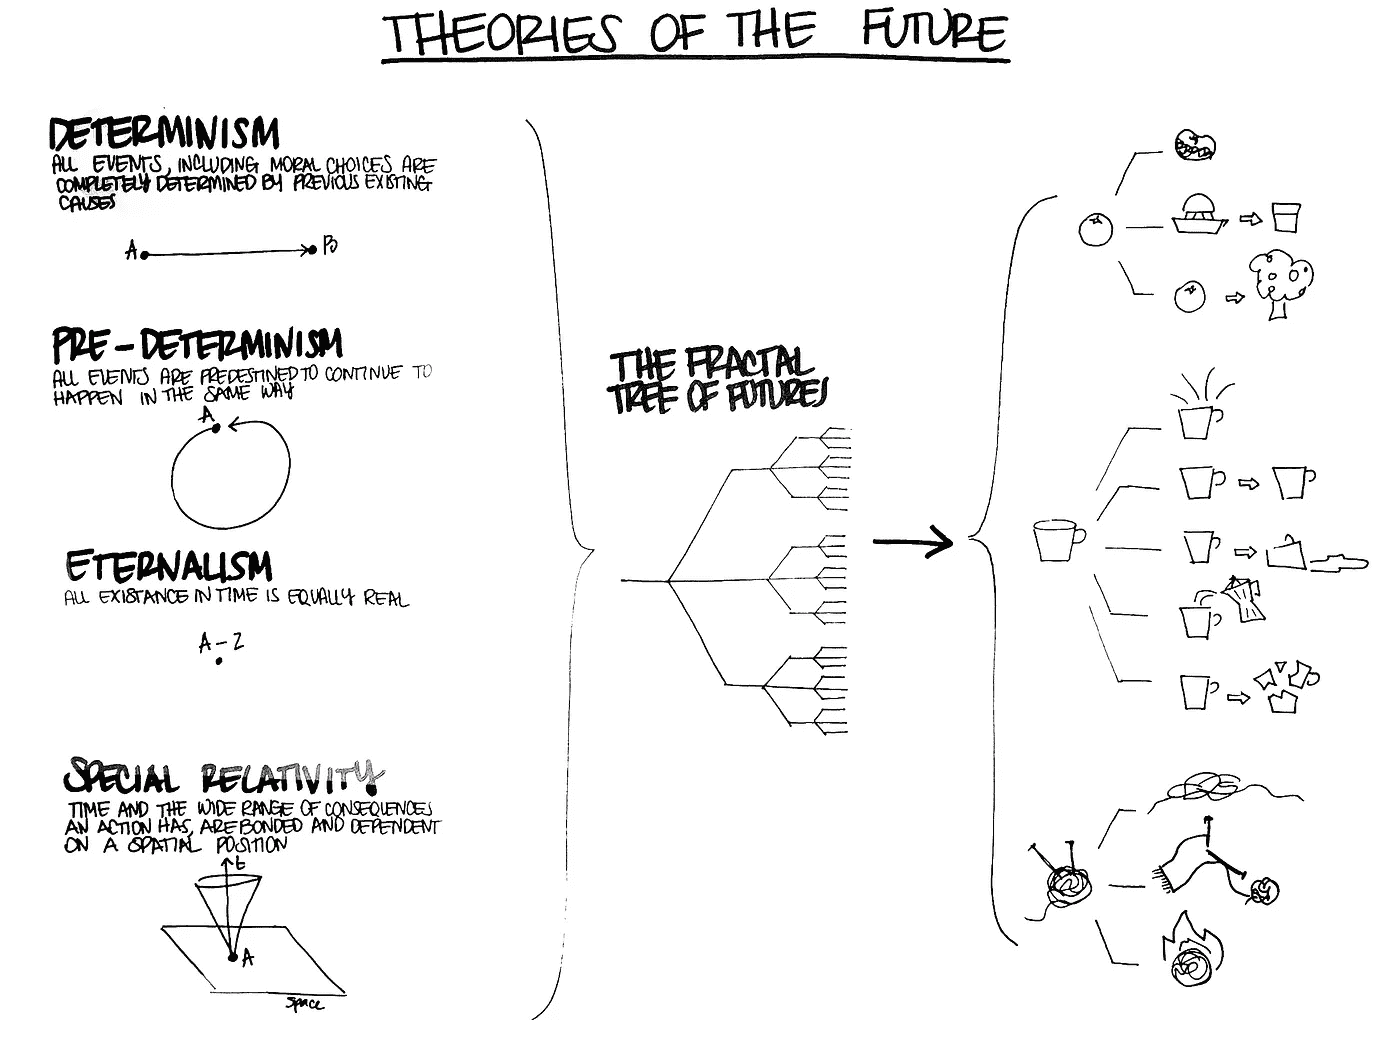 THEORIES OF THE FUTURE
DETERMINISM
ALL EVENTS, INCLUDING MORAL CHOICES ARE
COMPLETELY DETERMINED BY PREVIOUS EXISTING
CAUSES
A B
PRE-DETERMINISM
ALL EVENTS ARE PREDESTINED TO CONTINUE TO
HAPPEN IN THE SAME WAY
A
ETERNALISM
ALL EXISTANCE IN TIME IS EQUALLY REAL
A-Z
SPECIAL RELATIVITY
TIME AND THE WIDE RANGE OF CONSEQUENCES
AN ACTION HAS, ARE BONDED AND DEPENDENT
ON A SPATIAL POSITION
t
A
Space
THE FRACTAL
TREE OF FUTURES